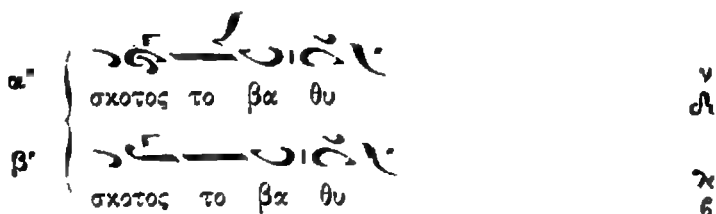 α"
σκοτος το βα θυ
β'
σκοτος το βα θυ